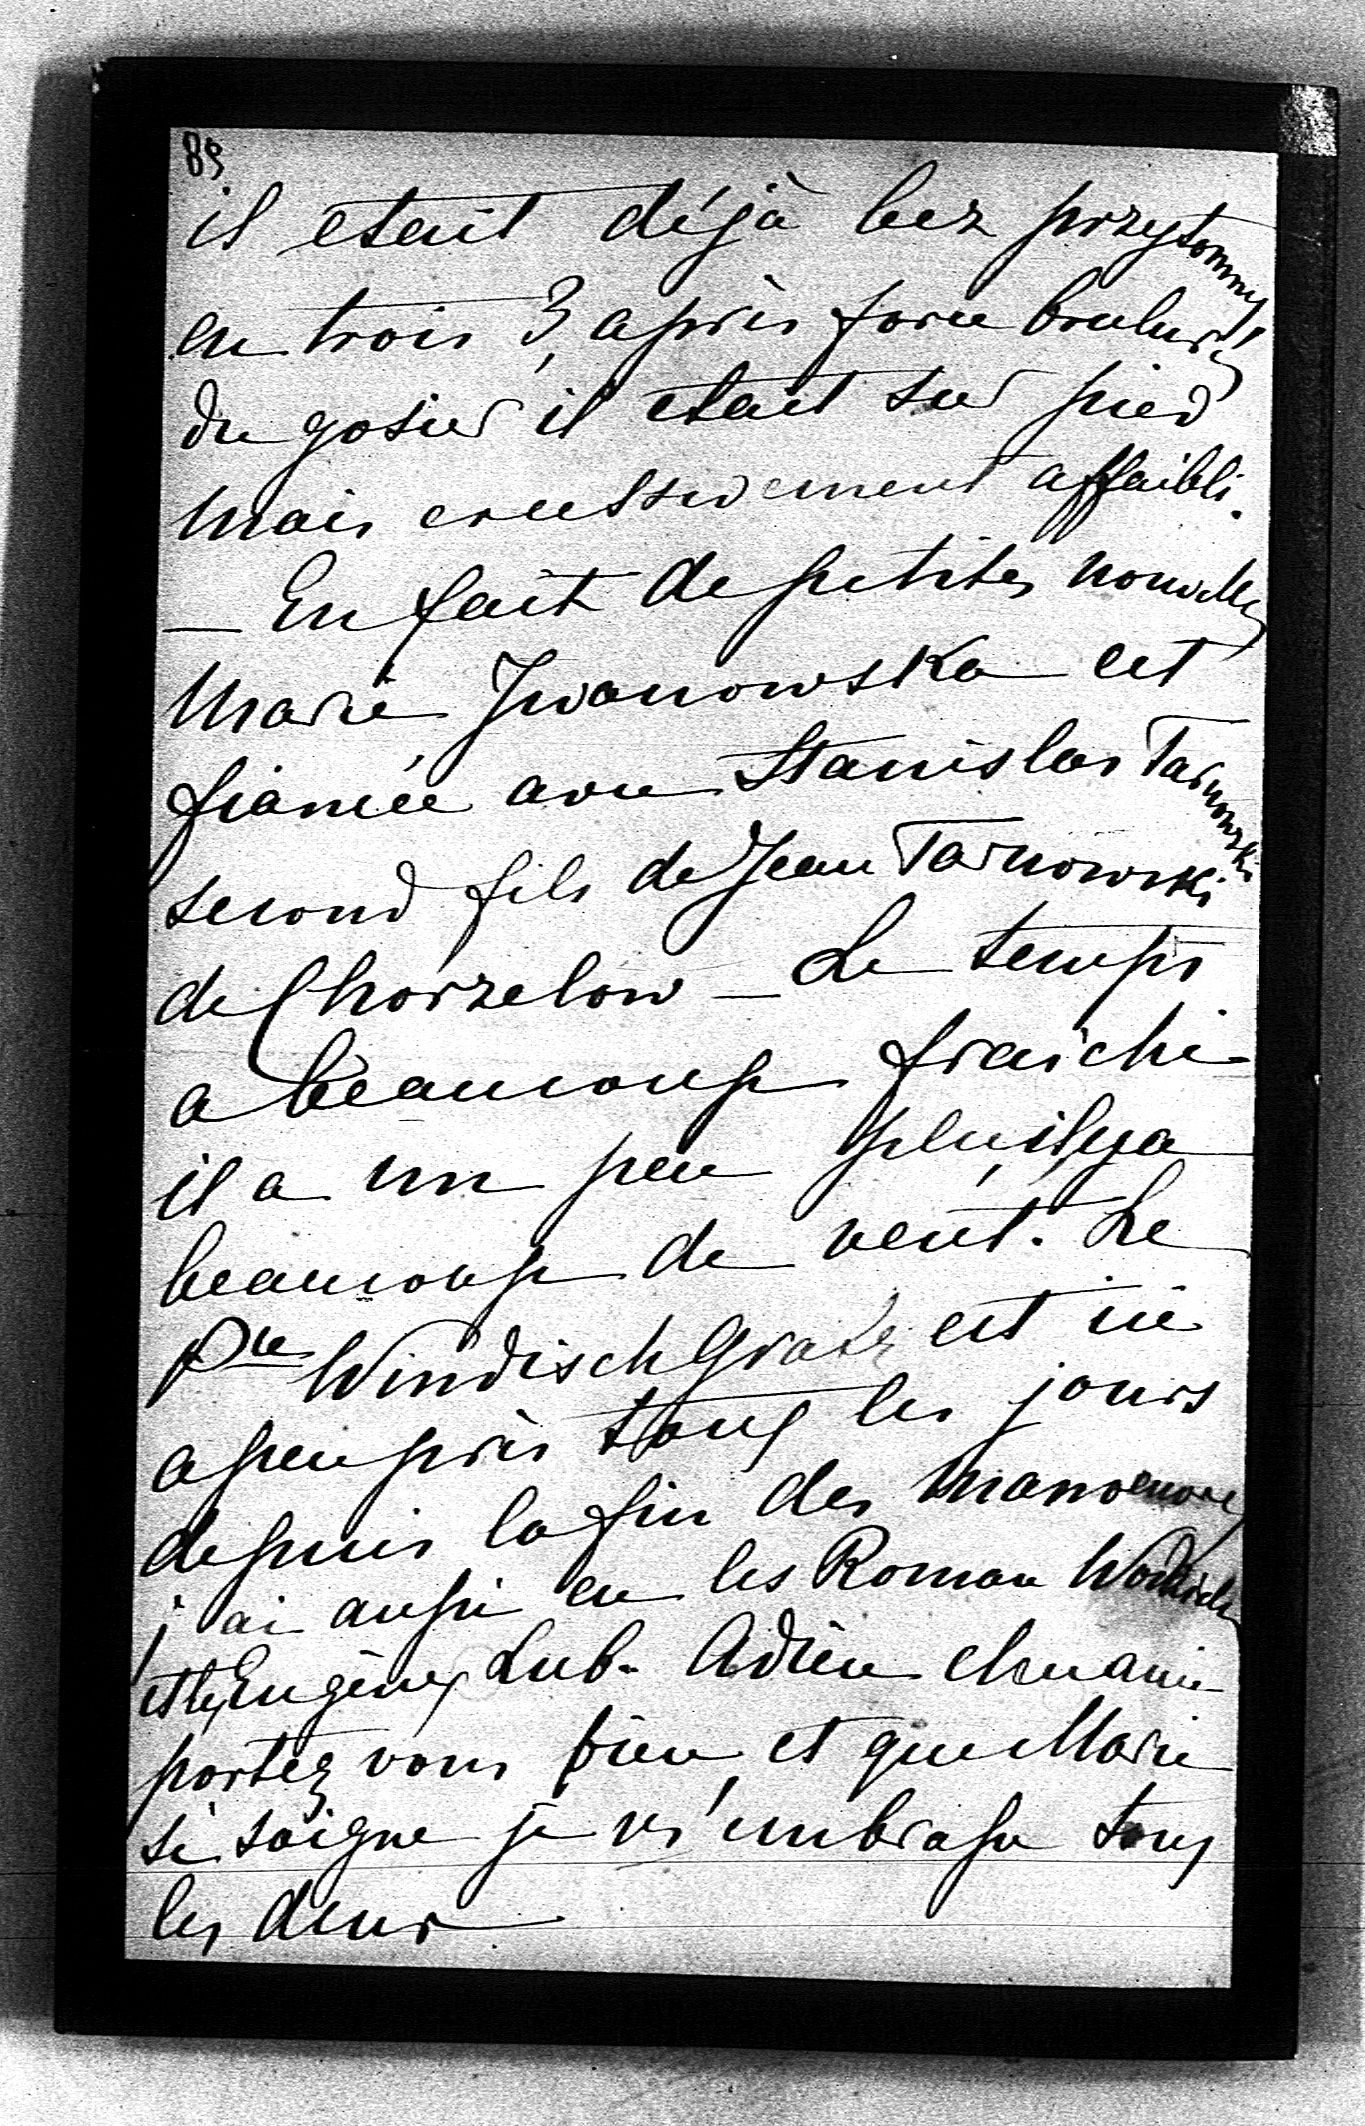 89
il etait déjà bez przytomny
en trois 3, après force brulures
du gosier il etait sur pied
mais excessivement affaibli.
— En fait de petites nouvelles
Marie Iwanowska est
fiancée avec Stanislas Tarnowski
second fils de Jean Tarnowski
de Chorzelow — Le temps
a beaucoup fraichi
il a un peu plu, il y a
beaucoup de vent. Le
Pce Windischgratz est ici
a peu près tous les jours
depuis la fin des manoeuvres
j'ai aussi eu les Roman Wodzicki
et les Eugène Lub. Adieu chère amie
portez vous bien, et que Marie
se soigne je v's embrasse tous
les deux